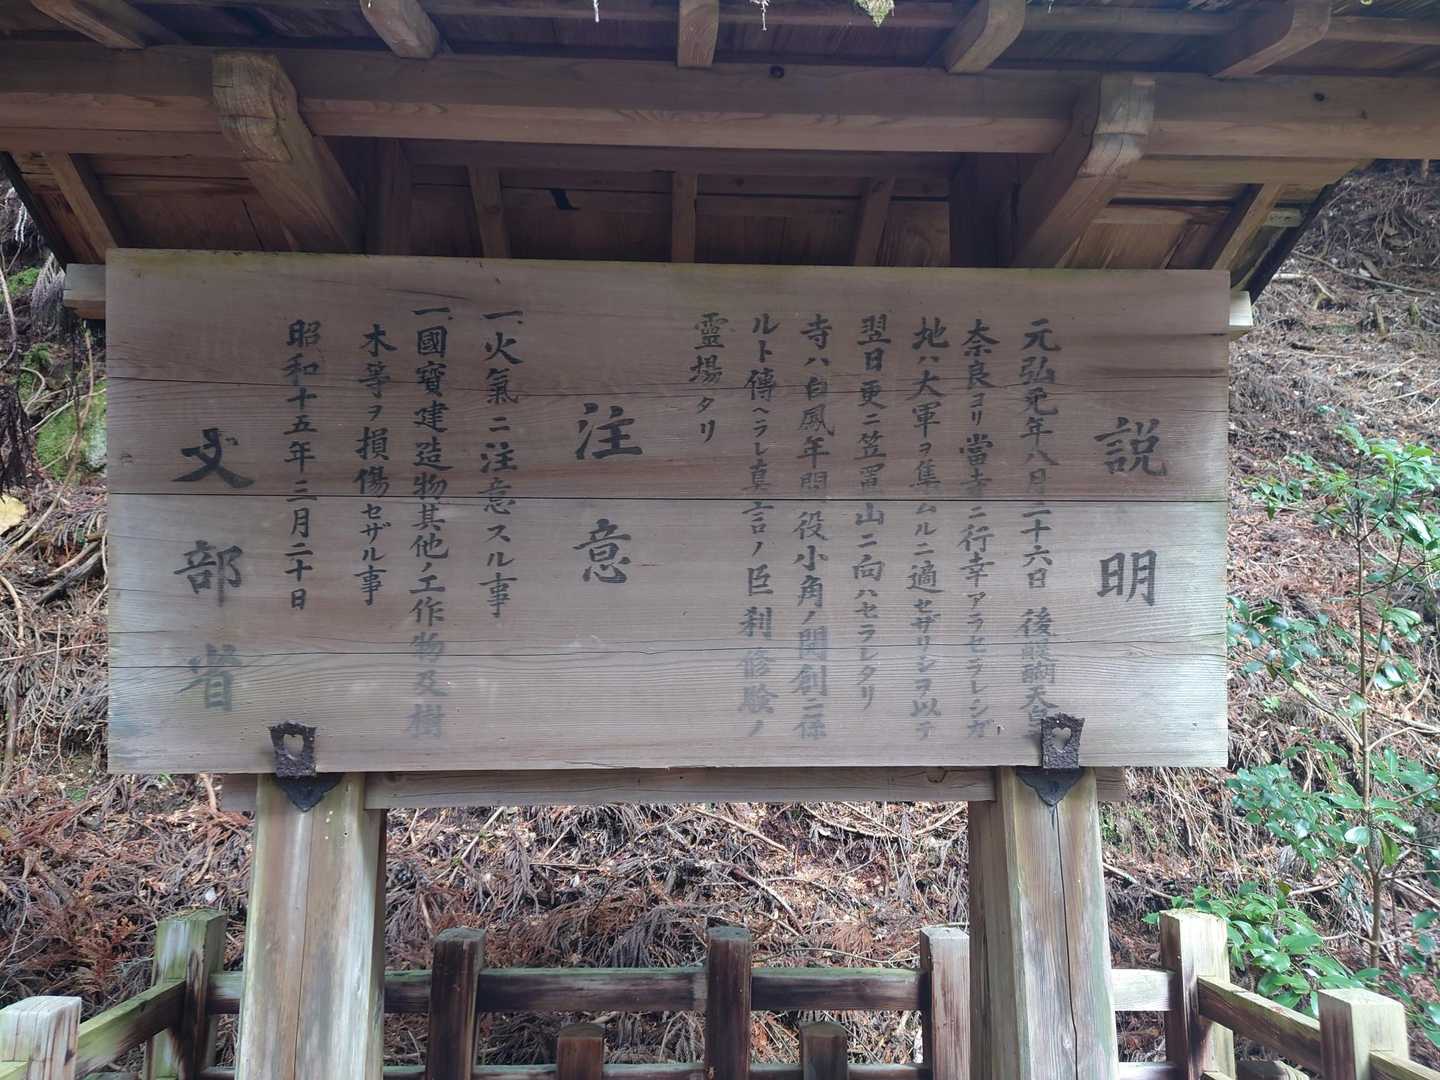 説明
元弘元年八月二十六日　後醍醐天皇
奈良ヨリ當寺ニ行幸アラセラレシガ
地ハ大軍ヲ集ムルニ適セザリシヲ以テ
翌日更ニ笠置山ニ向ハセラレタリ
寺ハ白鳳年間役小角ノ開創ニ係
ルト傳ヘラレ真言ノ巨刹修験ノ
靈場タリ
注意
一、火氣ニ注意スル事
一、國寶建造物其他ノ工作物及樹
木等ヲ損傷セザル事
昭和十五年三月二十日
文部省